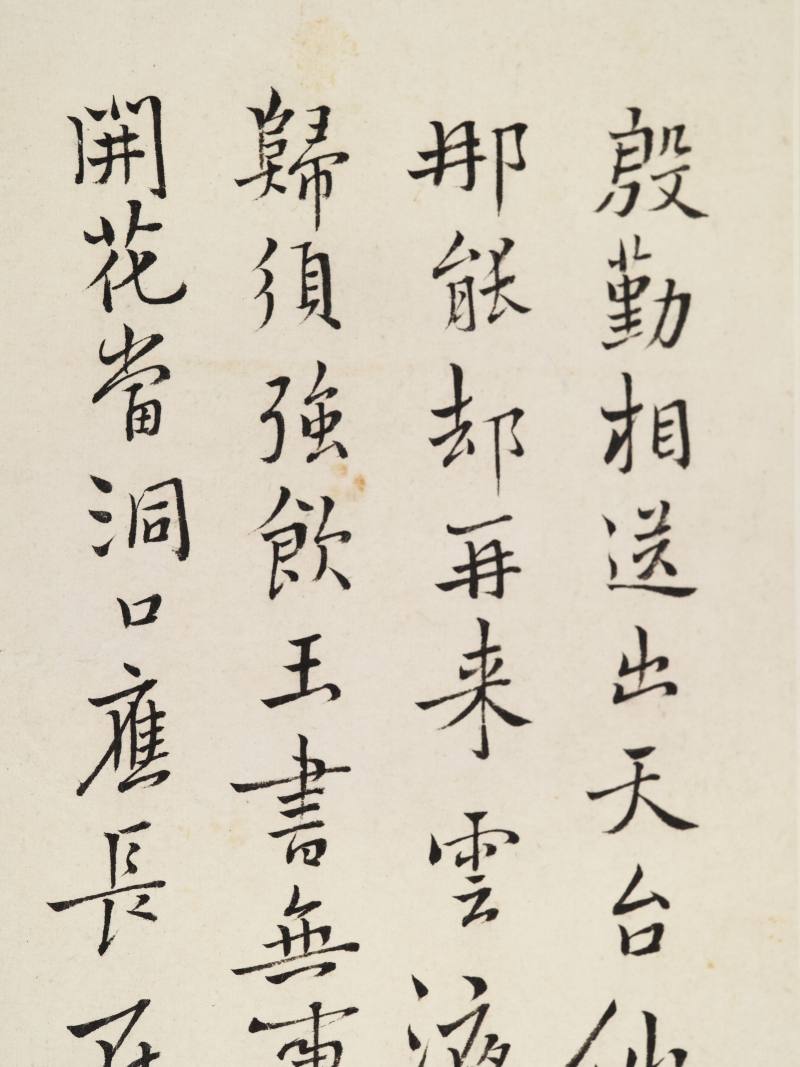 殷勤相送出天台仙
那能却再来雲液
歸須強飲玉書無事
開花當洞口應長在